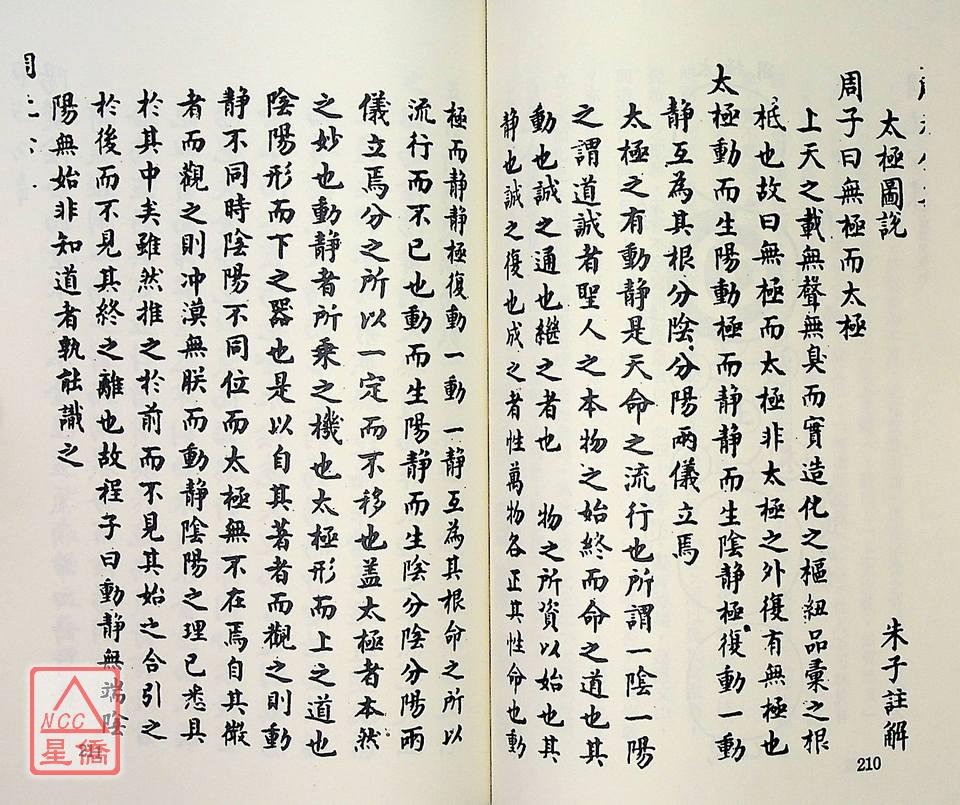 太極圖説
朱子註解
周子曰無極而太極
上天之載無聲無臭而實造化之樞紐品彙之根
柢也故曰無極而太極非太極之外復有無極也
太極動而生陽動極而静静而生陰静極復動一動
静互為其根分陰分陽兩儀立焉
太極之有動静是天命之流行也所謂一陰一陽
之謂道誠者聖人之本物之始終而命之道也其
動也誠之通也繼之者也 物之所資以始也其
静也誠之復也成之者性萬物各正其性命也動
210
極而静静極復動一動一静互為其根命之所以
流行而不已也動而生陽静而生陰分陰分陽兩
儀立焉分之所以一定而不移也盖太極者本然
之妙也動静者所乘之機也太極形而上之道也
陰陽形而下之器也是以自其著者而觀之則動
静不同時陰陽不同位而太極無不在焉自其微
者而觀之則冲漠無朕而動静陰陽之理已悉具
於其中矣雖然推之於前而不見其始之合引之
於後而不見其終之離也故程子曰動静無端陰
陽無始非知道者孰能識之
周
211
NCC
星僑